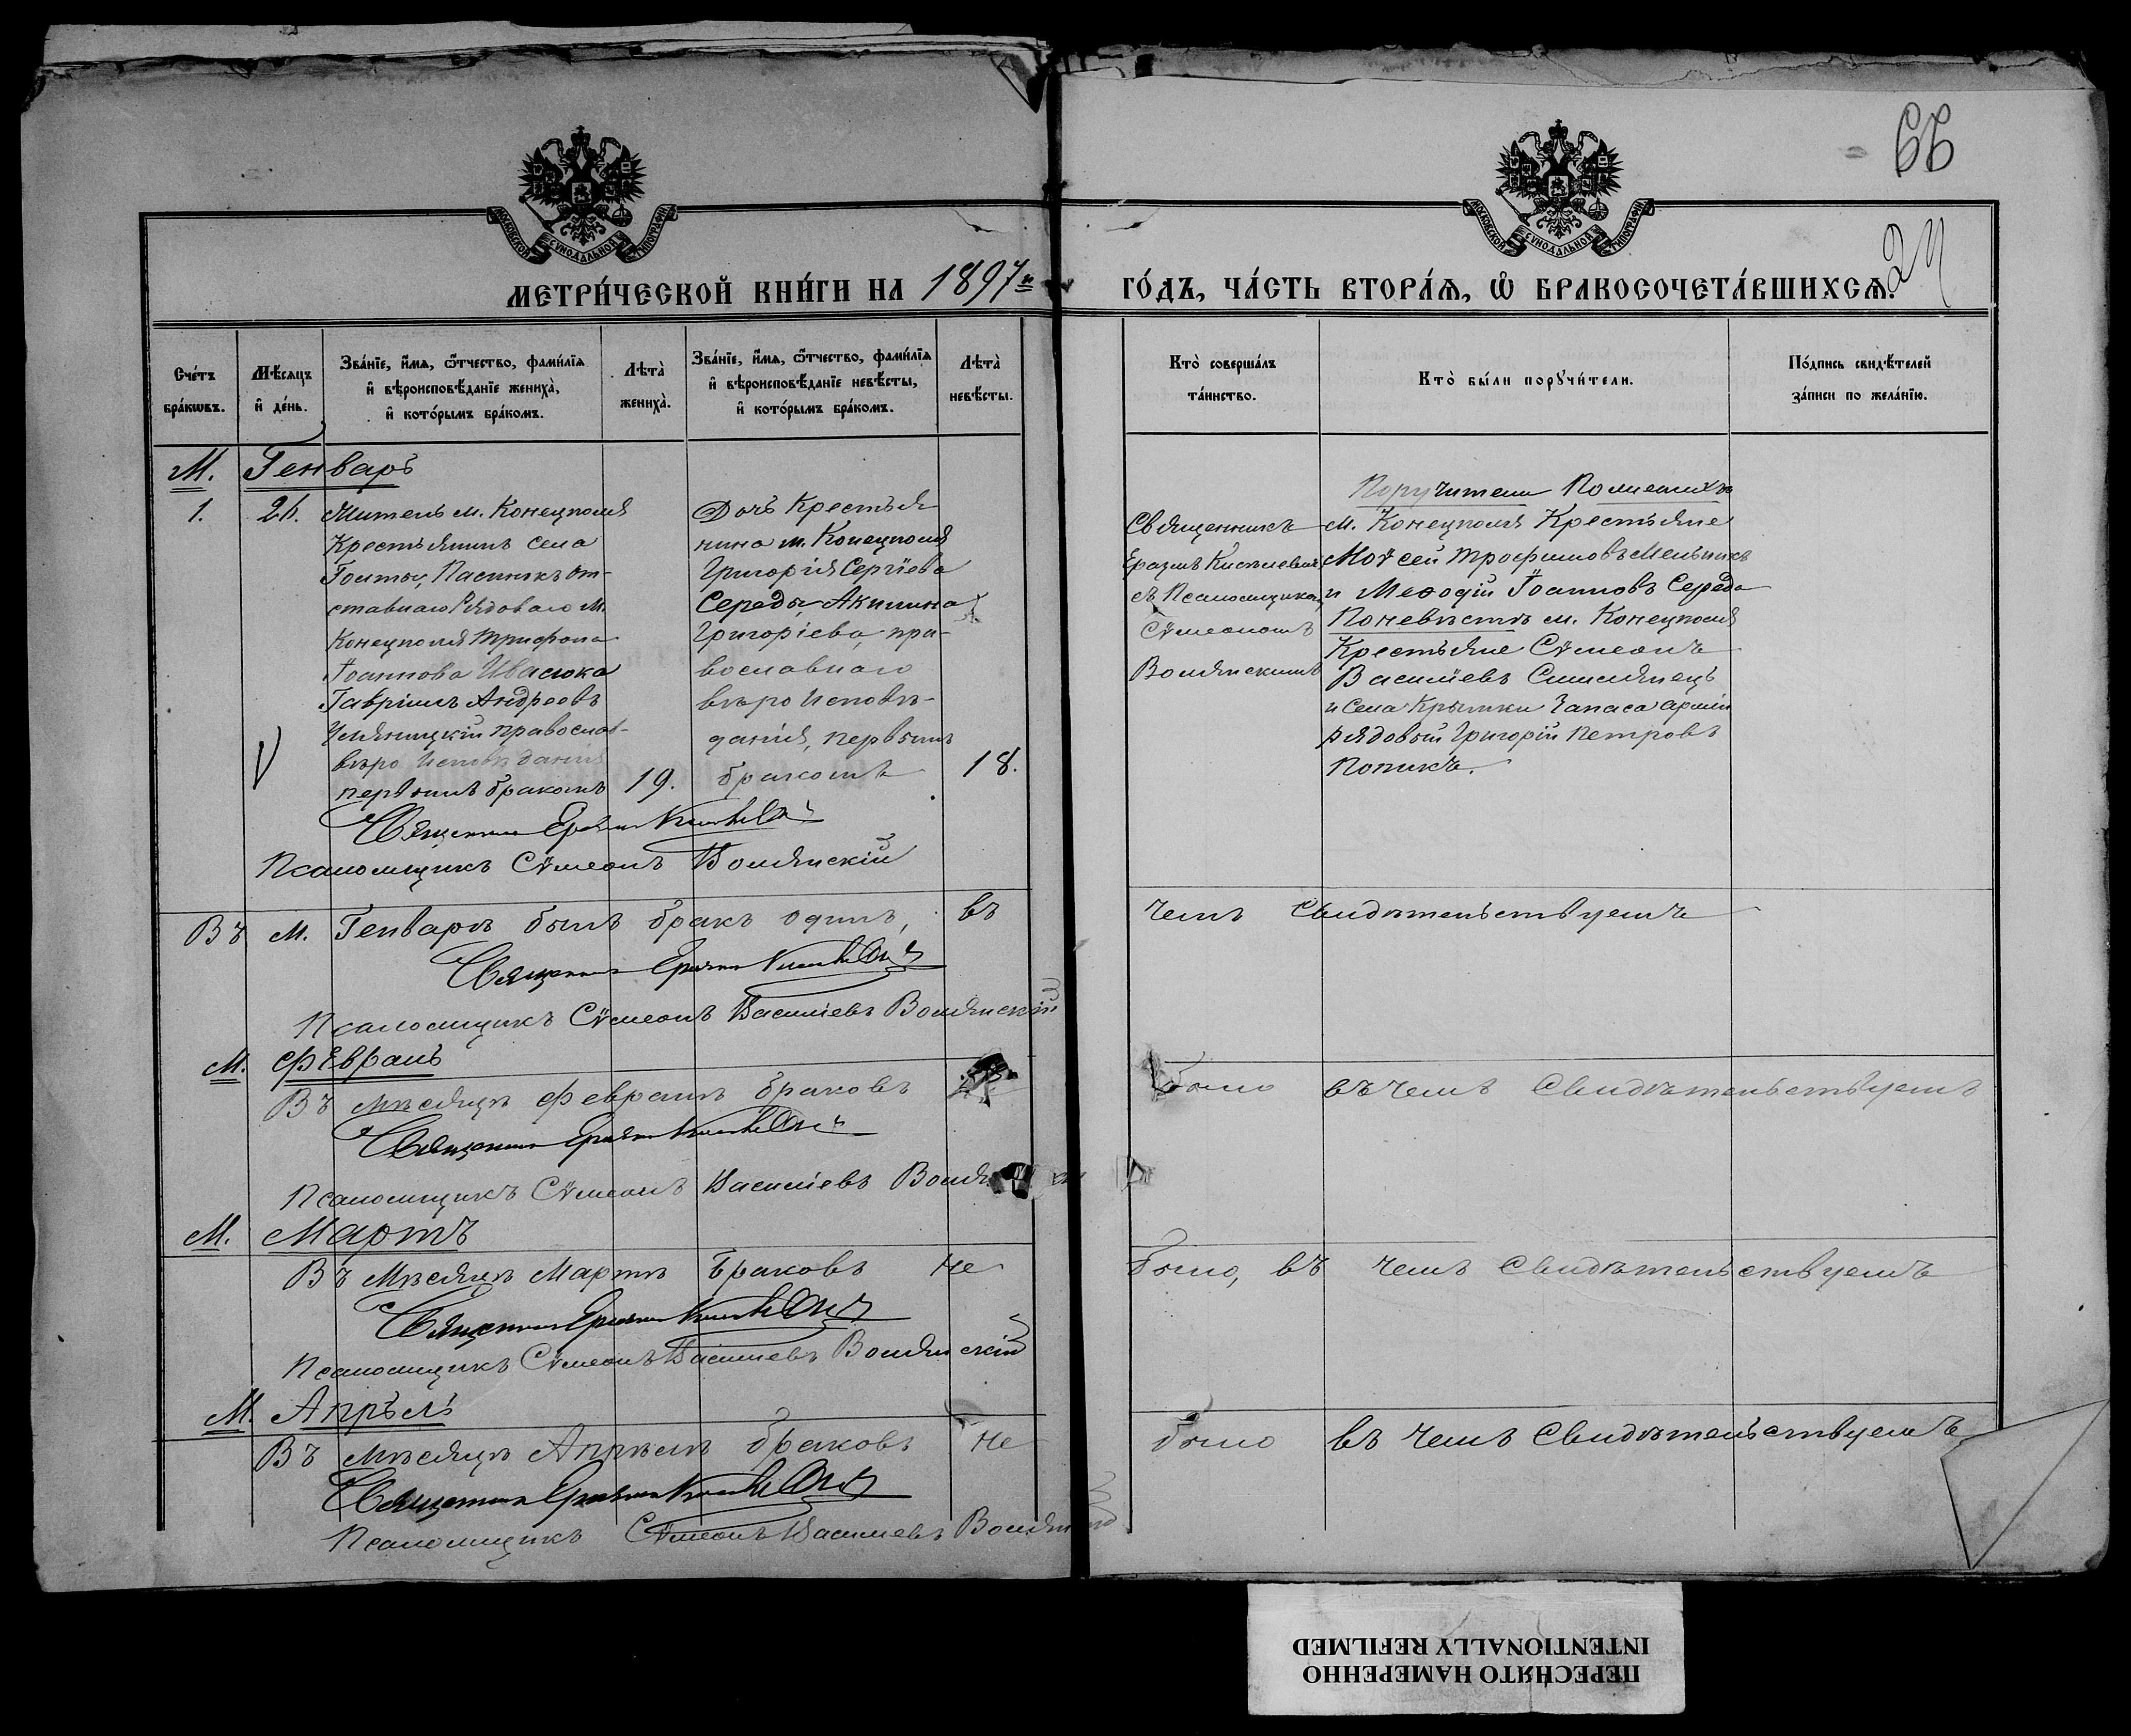 66
МОСКОВСКОЙ СѴНОДАЛЬНОЙ ТИПОГРАФІИ
МОСКОВСКОЙ СѴНОДАЛЬНОЙ ТИПОГРАФІИ
24
МЕТРИ́ЧЕСКОЙ КНИ́ГИ НА 1897й
ГО́ДЪ, ЧА́СТЬ ВТОРА́Ѧ, Ѡ БРАКОСОЧЕТА́ВШИХСѦ.
Сче́тъ бра́кѡвъ.
Мѣ́сѧцъ и де́нь.
Зва́нїе, и́мѧ, ѻ҆́тчество, фами́лїѧ и вѣроисповѣ́данїе жениха̀, и кото́рымъ бра́комъ.
Лѣта̀ жениха̀.
Зва́нїе, и́мѧ, ѻ҆́тчество, фами́лїѧ и вѣроисповѣ́данїе невѣ́сты, и кото́рымъ бра́комъ.
Лѣта̀ невѣ́сты.
Кто̀ соверша́лъ та́инство.
Кто̀ бы́ли порꙋчи́тели.
По́дпись свидѣ́телей за́писи по жела́нїю.
М. Генварь
1.
26.
Житель м. Конецполя
Крестьянинъ села
Голты, Пасынокъ от-
ставнаго Рядоваго м.
Конецполя Трифона
Іоаннова Ивасюка
Гавріилъ Андреевъ
православ-
вѣроисповѣданія
первымъ бракомъ
19.
Дочь Крестья
нина м. Конецполя
Григорія Сергіева
Середы, Акилина
Григоріева, пра-
вославнаго
вѣроисповѣ-
данія, первымъ
бракомъ
18.
Священникъ
съ Псаломщикомъ
Сѵмеономъ
Волянскимъ
Поручители По женихѣ
м. Конецполя Крестьяне
Моѵсей Трофимовъ Мельникъ
и Меѳодій Іоанновъ Середа
По невѣстѣ м. Конецполя
Крестьяне Сѵмеонъ
Василіевъ
и села Крымки Запаса арміи
рядовый Григорій Петровъ
Попикъ.
Священникъ
Псаломщикъ Сѵмеонъ Волянскій
Въ М. Генварѣ былъ бракъ одинъ, въ
чемъ свидѣтельствуемъ
Священникъ
Псаломщикъ Сѵмеонъ Василіевъ Волянскій
М. Февраль
Въ мѣсяцѣ Февралѣ браковъ
было въ чемъ свидѣтельствуемъ
Священникъ
Псаломщикъ Сѵмеонъ Василіевъ
М. Мартъ
Въ Мѣсяцѣ Мартѣ браковъ не
было, въ чемъ свидѣтельствуемъ
Священникъ
Псаломщикъ Сѵмеонъ Василіевъ Волянскій
М. Апрѣль
Въ мѣсяцѣ Апрѣлѣ браковъ не
было въ чемъ свидѣтельствуемъ
Священникъ
Псаломщикъ Сѵмеонъ Василіевъ
ПЕРЕСНЯТО НАМЕРЕННО
INTENTIONALLY REFILMED